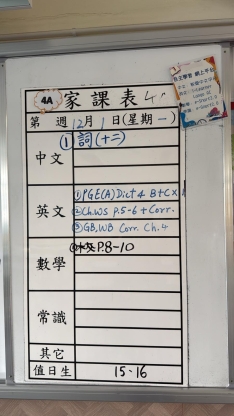 4A 家課表
第 週 12月1日(星期一)
中文 ①詞(十二)
英文 ①PGE(A) Dict 4 B+C×1
②Ch.WS P.5-6 + Corr.
③GB,WB Corr. Ch.4
數學 P.8-10
常識
其它
值日生 15、16